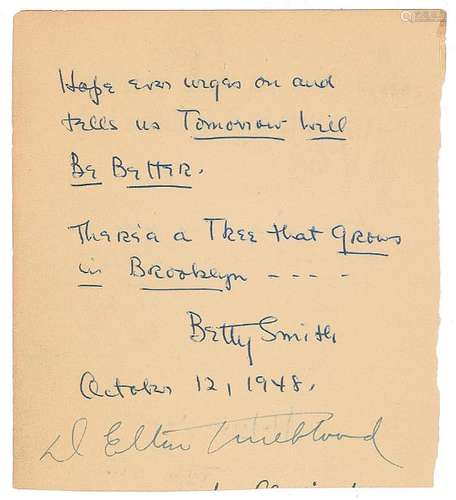 Hope ever urges on and
tells us Tomorrow Will
Be Better.
There's a Tree that Grows
in Brooklyn - - - -
Betty Smith
October 12, 1948.
D Elton Trueblood